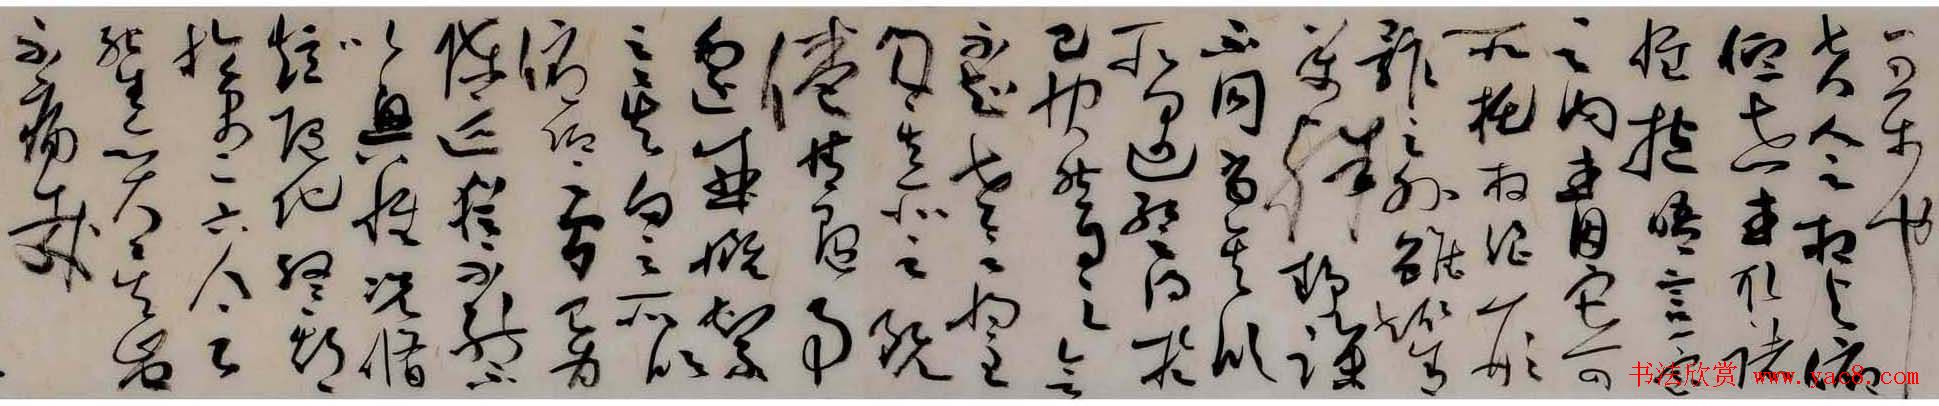 可樂也
夫人之相與俯
仰一世或取諸
懷抱悟言一室
之内或因寄
所託放浪形
骸之外雖趣舍
萬殊靜躁
不同當其欣
所遇暫得於
己快然自足
不知老之將至
及其所之既
倦情隨事
遷感慨係
之矣向之所欣
俯仰之間已為
陳迹猶不能不
以之興懷況脩
短隨化終期
於盡古人云
死生亦大矣豈
不痛哉
书法欣赏 www.yac8.com